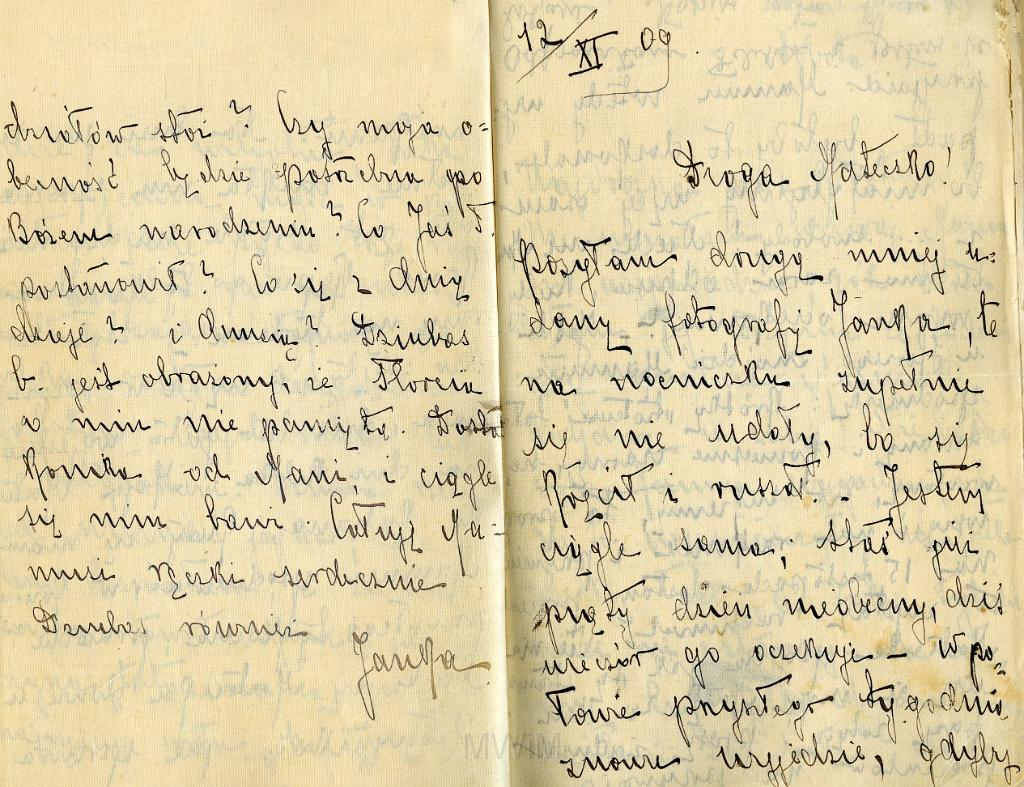 działów stoi? Czy moja o=
becność będzie potrzebna po
Bożem narodzeniu? Co Jaś T.
postanowił? Co się z Unią
dzieje? i Dziubas
b. jest obrażony, że Florcia
o nim nie pamięta. Dostał
Konika od Mani, i ciągle
się nim bawi Całuję Ma-
musi rączki serdecznie
Dziubas również
Janka
12/XI 09.
Droga Mateczko!
Posyłam drugą mniej u=
daną fotografję Janka, te
na nocniczku zupełnie
się nie udały, bo się
kręcił i ruszał - Jestem
ciągle sama, Staś już
piąty dzień nieobecny, dziś
wieczór go oczekuję - w po=
łowie przyszłego tygodnia
znowu wyjedzie, gdyby
MWM